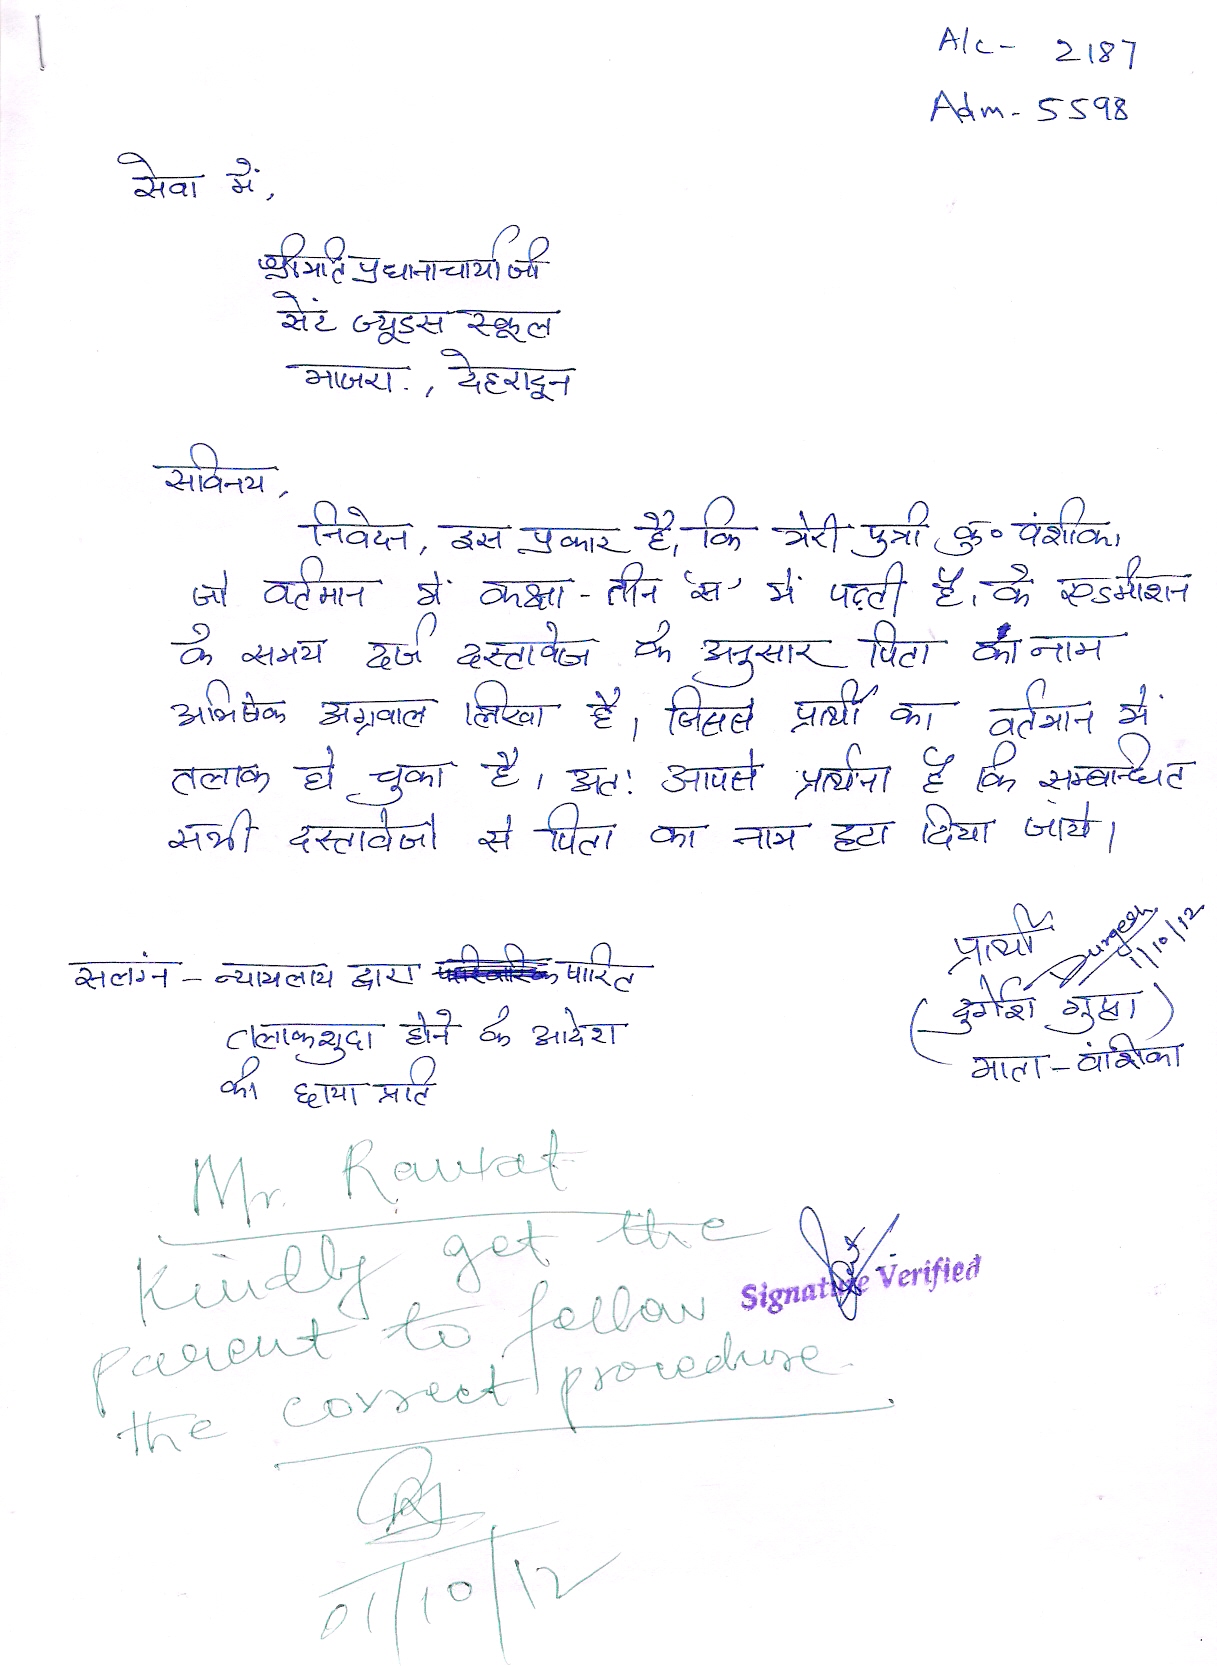 A/c - 2187
Adm - 5598
सेवा में,
श्रीमति प्रधानाचार्या जी
सेंट ज्यूडस स्कूल
माजरा., देहरादून
सविनय,
निवेदन, इस प्रकार है, कि मेरी पुत्री कु० वंशीका
जो वर्तमान में कक्षा - तीन 'स' में पढ़ती है, के एडमीशन
के समय दर्ज दस्तावेज के अनुसार पिता का नाम
अभिषेक अग्रवाल लिखा है, जिससे प्रार्थी का वर्तमान में
तलाक हो चुका है। अतः आपसे प्रार्थना है कि सम्बन्धित
सभी दस्तावेजो से पिता का नाम हटा दिया जाये।
प्रार्थी
Durgesh
1/10/12
(दुर्गेश गुप्ता)
माता - वंशिका
सलग्नं - न्यायलाय द्वारा पारित
तलाकशुदा होने के आदेश
की छाया प्रति
Mr. Rawat
Kindly get the
parent to follow
the correct procedure.
Signature Verified
01/10/12